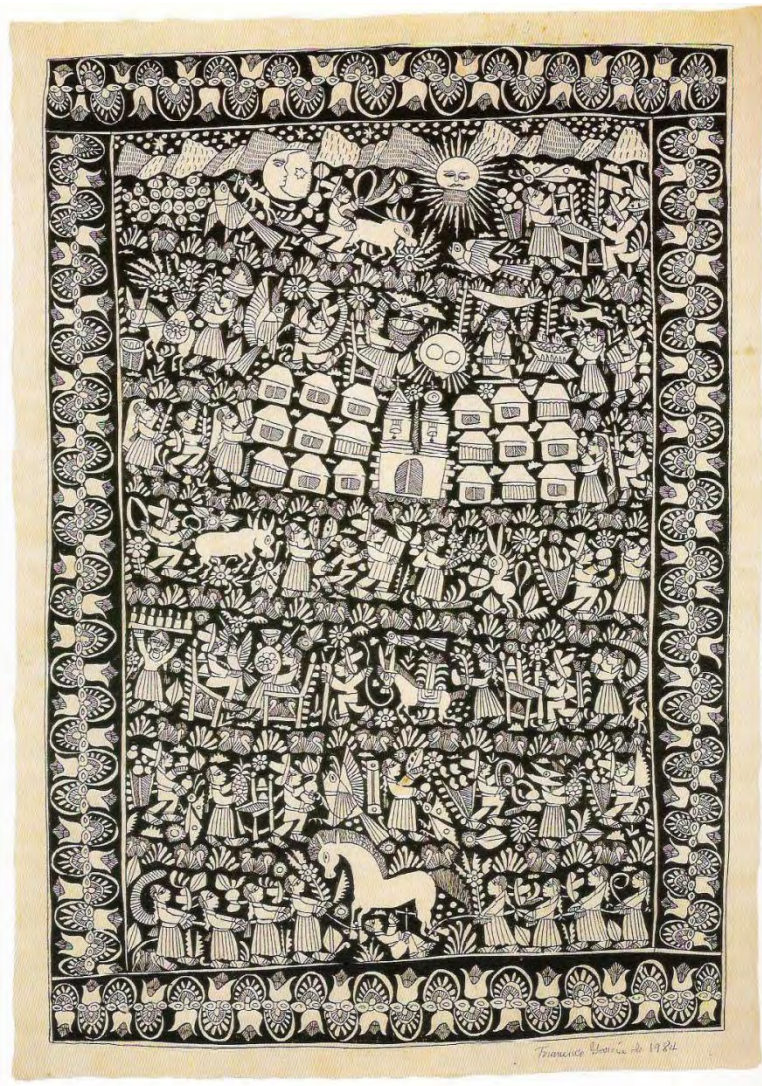 Francisco García de 1984